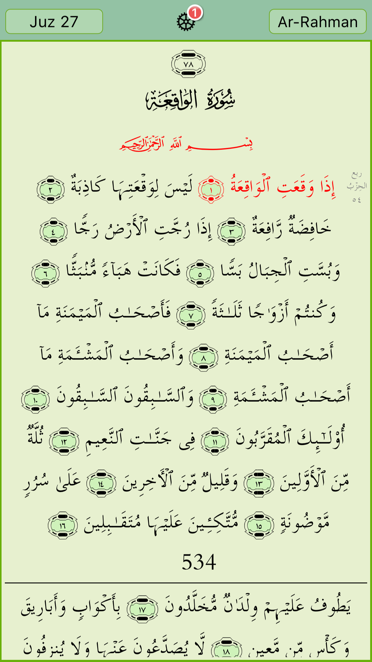 Juz 27
1
Ar-Rahman
٧٨
سُورَةُ الوَاقِعَةِ
بِسْمِ اللَّهِ الرَّحْمَٰنِ الرَّحِيمِ
إِذَا وَقَعَتِ ٱلْوَاقِعَةُ ١ لَيْسَ لِوَقْعَتِهَا كَاذِبَةٌ ٢
ربع الحزب ٥٤
خَافِضَةٌ رَّافِعَةٌ ٣ إِذَا رُجَّتِ ٱلْأَرْضُ رَجًّا ٤
وَبُسَّتِ ٱلْجِبَالُ بَسًّا ٥ فَكَانَتْ هَبَآءً مُّنۢبَثًّا ٦
وَكُنتُمْ أَزْوَٰجًا ثَلَـٰثَةً ٧ فَأَصْحَـٰبُ ٱلْمَيْمَنَةِ مَآ
أَصْحَـٰبُ ٱلْمَيْمَنَةِ ٨ وَأَصْحَـٰبُ ٱلْمَشْـَٔمَةِ مَآ
أَصْحَـٰبُ ٱلْمَشْـَٔمَةِ ٩ وَٱلسَّـٰبِقُونَ ٱلسَّـٰبِقُونَ ١٠
أُو۟لَـٰٓئِكَ ٱلْمُقَرَّبُونَ ١١ فِى جَنَّـٰتِ ٱلنَّعِيمِ ١٢ ثُلَّةٌ
مِّنَ ٱلْأَوَّلِينَ ١٣ وَقَلِيلٌ مِّنَ ٱلْـَٔاخِرِينَ ١٤ عَلَىٰ سُرُرٍ
مَّوْضُونَةٍ ١٥ مُّتَّكِـِٔينَ عَلَيْهَا مُتَقَـٰبِلِينَ ١٦
534
يَطُوفُ عَلَيْهِمْ وِلْدَٰنٌ مُّخَلَّدُونَ ١٧ بِأَكْوَابٍ وَأَبَارِيقَ
وَكَأْسٍ مِّن مَّعِينٍ ١٨ لَّا يُصَدَّعُونَ عَنْهَا وَلَا يُنزِفُونَ